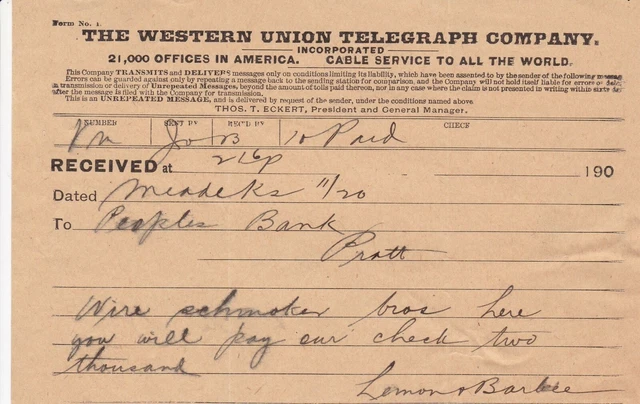 Form No. 1.
THE WESTERN UNION TELEGRAPH COMPANY.
INCORPORATED
21,000 OFFICES IN AMERICA. CABLE SERVICE TO ALL THE WORLD.
This Company TRANSMITS and DELIVERS messages only on conditions limiting its liability, which have been assented to by the sender of the following message.
Errors can be guarded against only by repeating a message back to the sending station for comparison, and the Company will not hold itself liable for errors or delays
in transmission or delivery of Unrepeated Messages, beyond the amount of tolls paid thereon, nor in any case where the claim is not presented in writing within sixty days
after the message is filed with the Company for transmission.
This is an UNREPEATED MESSAGE, and is delivered by request of the sender, under the conditions named above
THOS. T. ECKERT, President and General Manager.
NUMBER SENT BY REC'D BY CHECK
Jo B 10 Paid
RECEIVED at 216p 190
Dated Meade Ks 11/20
To Peoples Bank
Pratt
Wire schmoker bros here
you will pay our check two
thousand
Lemon & Barbee